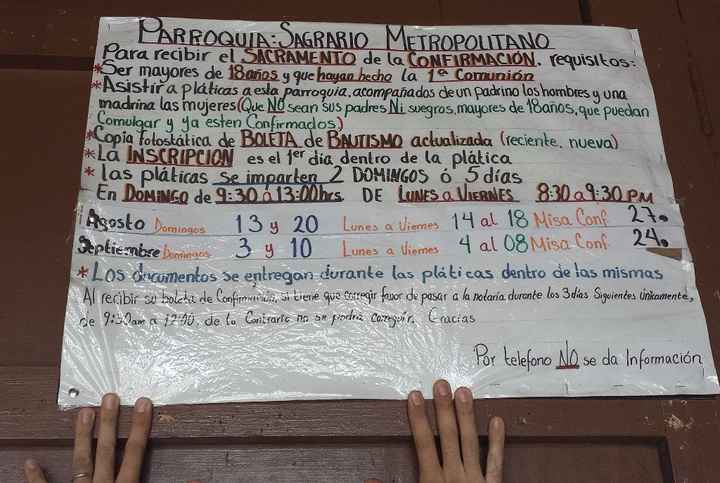 PARROQUIA: SAGRARIO METROPOLITANO
Para recibir el SACRAMENTO de la CONFIRMACIÓN. requisitos:
*Ser mayores de 18 años y que hayan hecho la 1ª Comunión
*Asistir a pláticas a esta parroquia, acompañados de un padrino los hombres y una
madrina las mujeres (Que NO sean sus padres Ni suegros, mayores de 18 años, que puedan
Comulgar y ya esten Confirmados)
*Copia fotostática de BOLETA de BAUTISMO actualizada (reciente, nueva)
*LA INSCRIPCION es el 1er dia dentro de la plática
* las pláticas se imparten 2 DOMINGOS ó 5 días
En DOMINGO de 9:30 a 13:00hrs DE LUNES a VIERNES 8:30 a 9:30 PM
Agosto Domingos 13 y 20 Lunes a Viernes 14 al 18 Misa Conf. 27.
Septiembre Domingos 3 y 10 Lunes a Viernes 4 al 08 Misa Conf. 24.
* Los documentos se entregan durante las pláticas dentro de las mismas
Al recibir su boleta de Confirmación, si tiene que corregir favor de pasar a la notaría durante los 3 días Siguientes Unicamente,
de 9:30am a 12:00, de lo Contrario no se podrá corregir. Gracias
Por telefono NO se da Información